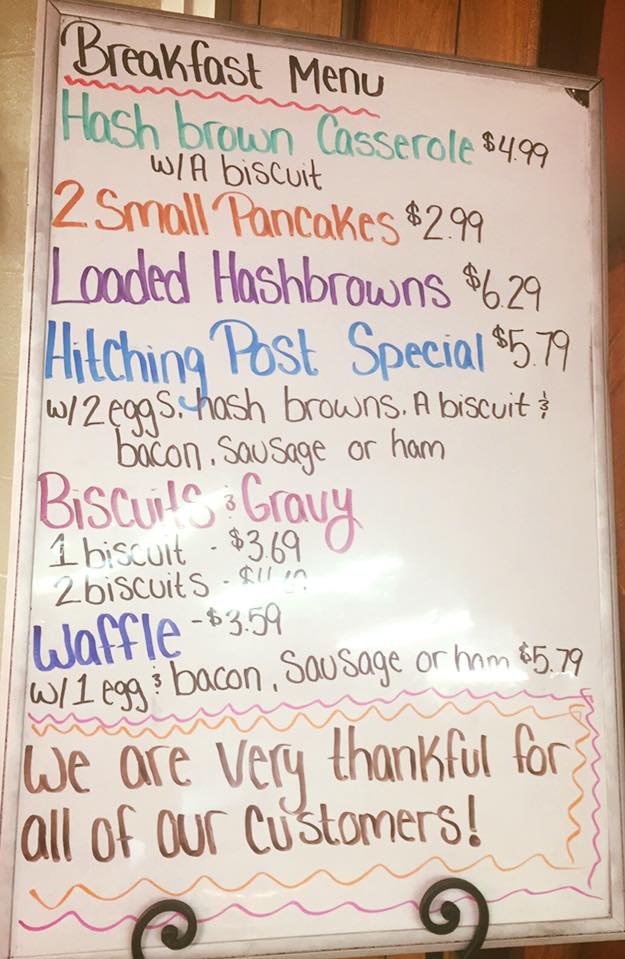 Breakfast Menu
Hash brown Casserole $4.99
w/A biscuit
2 Small Pancakes $2.99
Loaded Hashbrowns $6.29
Hitching Post Special $5.79
w/2 eggs, hash browns, A biscuit &
bacon, sausage or ham
Biscuits & Gravy
1 biscuit - $3.69
2 biscuits -
Waffle - $3.59
w/1 egg & bacon, Sausage or ham $5.79
We are very thankful for
all of our customers!